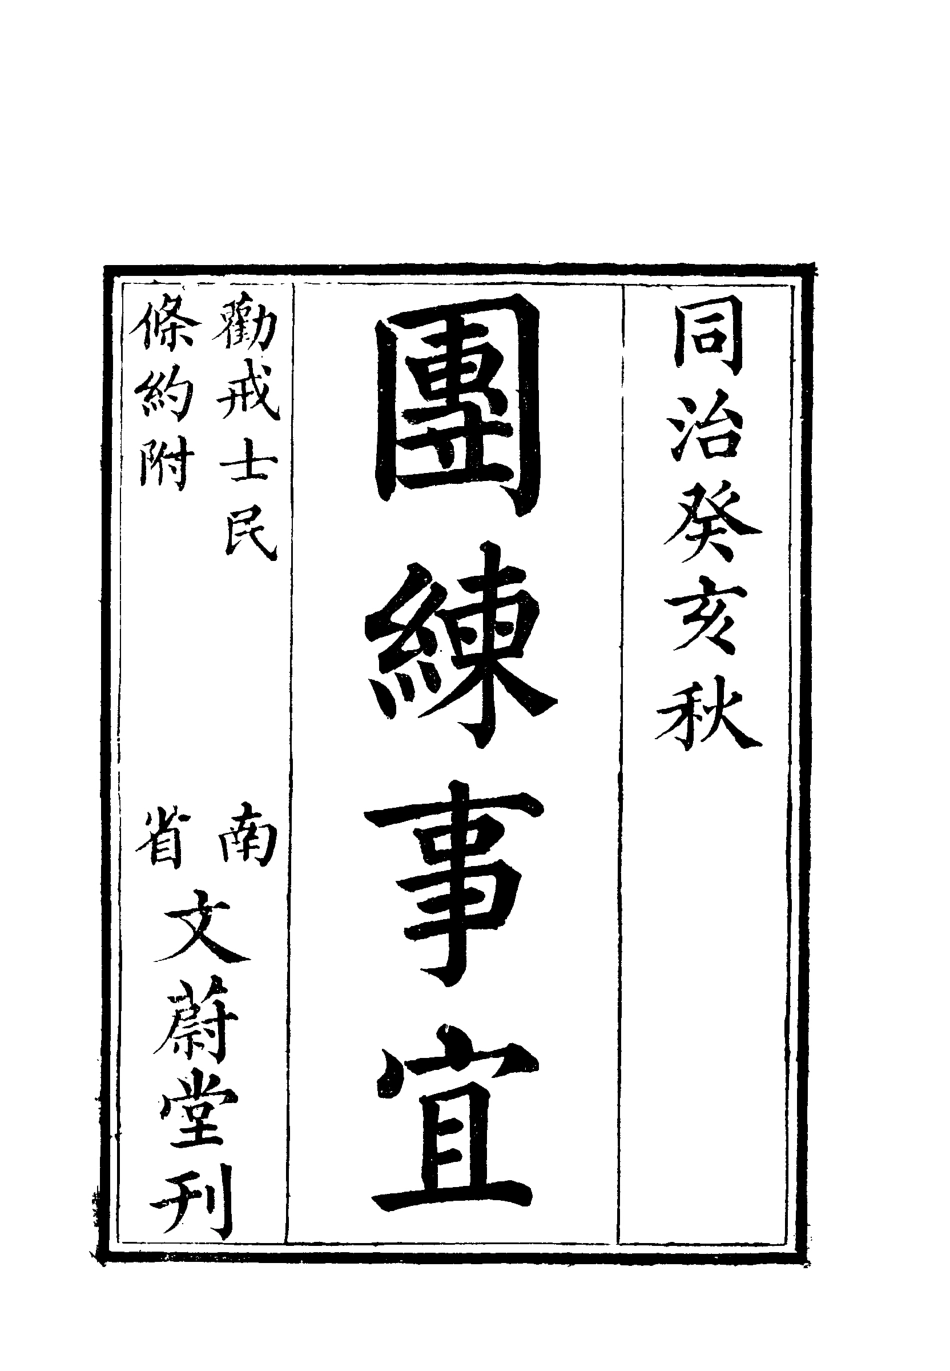 同治癸亥秋
團練事宜
勸戒士民
條約附
南省
文蔚堂刊